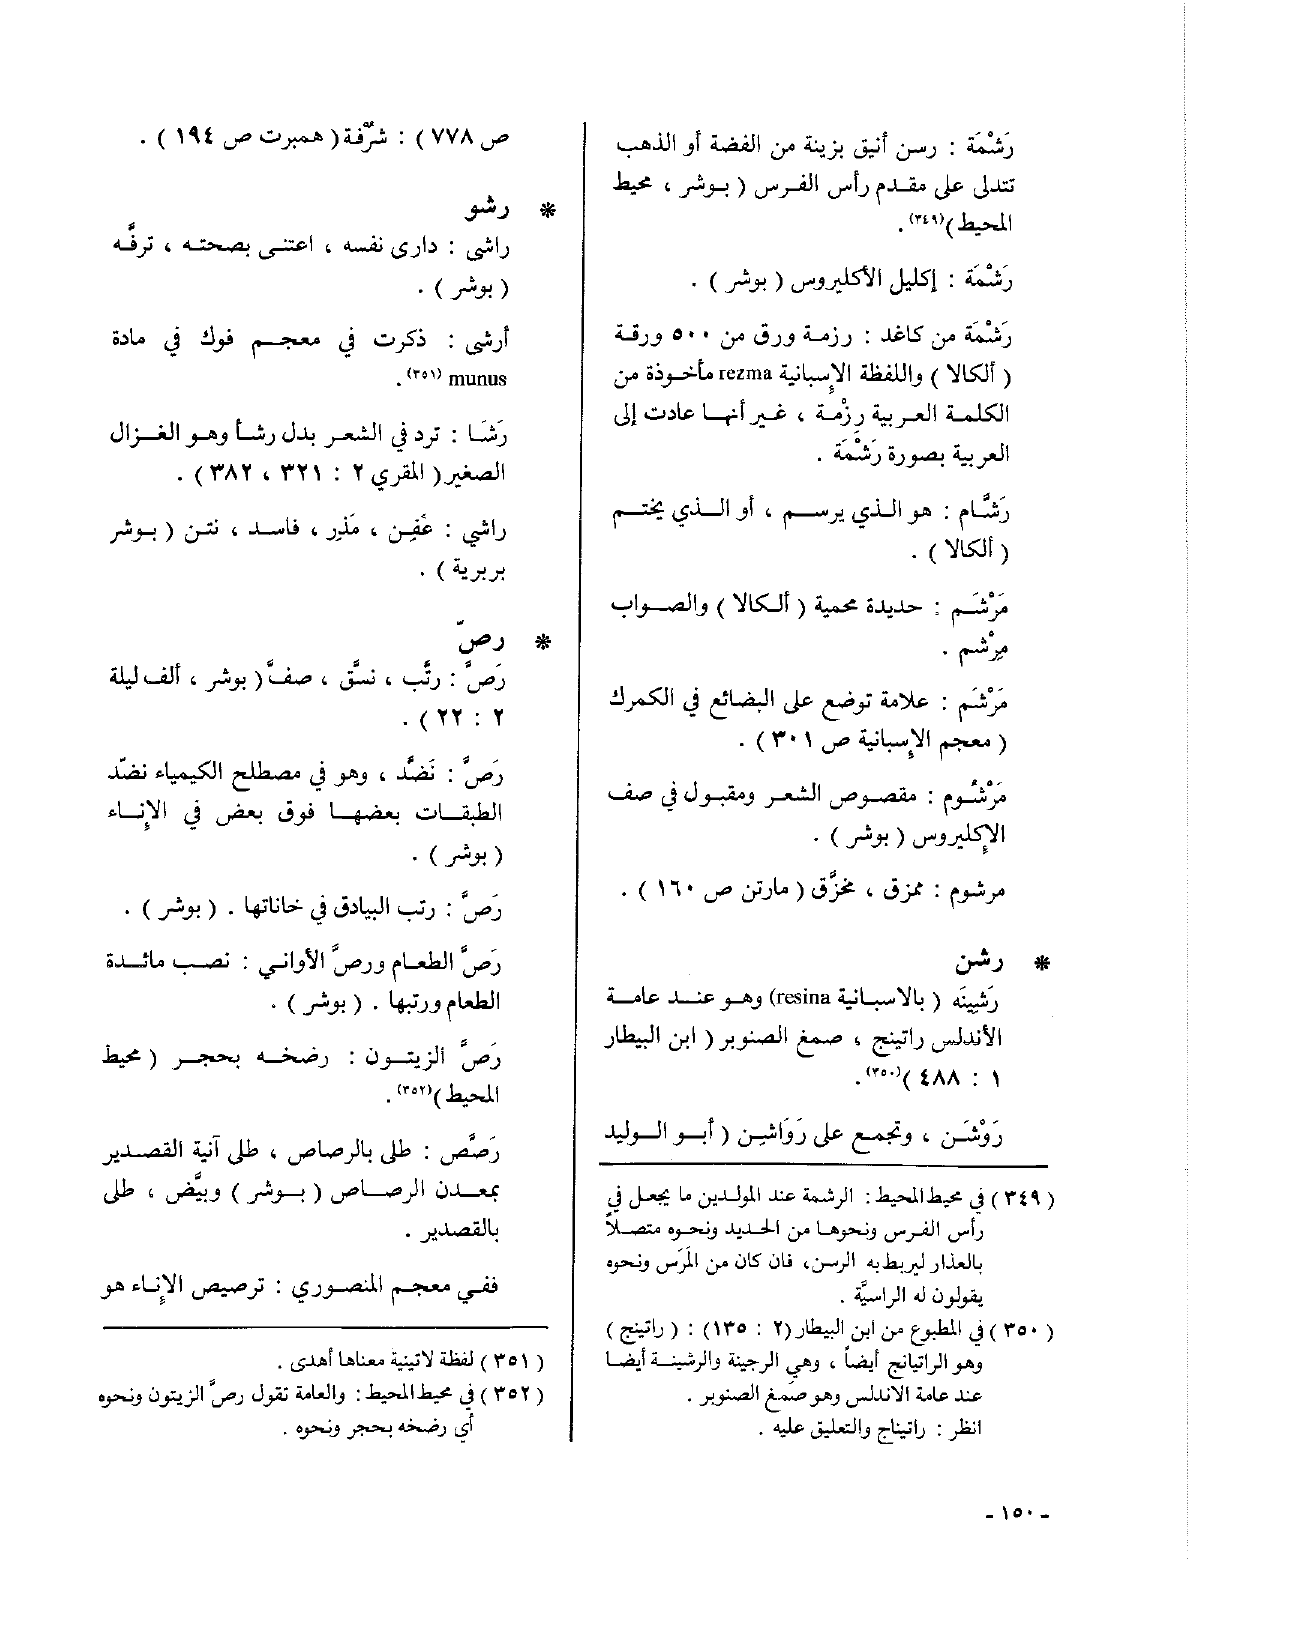 رَشْمَة : رسن أنيق بزينة من الفضة أو الذهب
تتدلى على مقدم رأس الفرس ( بوشر ، محيط
المحيط )(٣٤٩).
رَشْمَة : إكليل الأكليروس ( بوشر ) .
رَشْمَة من كاغد : رزمة ورق من ٥٠٠ ورقة
( ألكالا ) واللفظة الإسبانية rezma مأخوذة من
الكلمة العربية رزْمة ، غير أنها عادت إلى
العربية بصورة رَشْمَة .
رَشَّام : هو الذي يرسم ، أو الذي يختم
( ألكالا ) .
مَرْشَم : حديدة محمية ( ألكالا ) والصواب
مِرْشم .
مَرْشَم : علامة توضع على البضائع في الكمرك
( معجم الإسبانية ص ٣٠١ ) .
مَرْشُوم : مقصوص الشعر ومقبول في صف
الإكليروس ( بوشر ) .
مرشوم : ممزق ، مخزَّق ( مارتن ص ١٦٠ ) .
* رشن
رَشِينَه ( بالاسبانية resina) وهو عند عامة
الأندلس راتينج ، صمغ الصنوبر ( ابن البيطار
١ : ٤٨٨ )(٣٥٠).
رَوْشَن ، وتجمع على رَوَاشين ( أبو الوليد
( ٣٤٩ ) في محيط المحيط : الرشمة عند المولدين ما يجعل في
رأس الفرس ونحوها من الحديد ونحوه متصلاً
بالعذار ليربط به الرسن، فان كان من المَرَس ونحوه
يقولون له الراسيَّة .
( ٣٥٠ ) في المطبوع من ابن البيطار (٢ : ١٣٥) : ( راتينج )
وهو الراتيانج أيضاً ، وهي الرجينة والرشينة أيضا
عند عامة الاندلس وهو صَمغ الصنوبر .
انظر : راتيناج والتعليق عليه .
ص ٧٧٨ ) : شرَّفة ( همبرت ص ١٩٤ ) .
* رشو
راشى : دارى نفسه ، اعتنى بصحته ، ترفَّه
( بوشر ) .
أرشى : ذكرت في معجم فوك في مادة
munus (٣٥١).
رَشَا : ترد في الشعر بدل رشأ وهو الغزال
الصغير ( المقري ٢ : ٣٢١ ، ٣٨٢ ) .
راشي : عَفِن ، مَذِر ، فاسد ، نتن ( بوشر
بربرية ) .
* رصّ
رَصَّ : رتَّب ، نسَّق ، صفَّ ( بوشر ، ألف ليلة
٢ : ٢٢ ) .
رَصَّ : نَضَّد ، وهو في مصطلح الكيمياء نضّد
الطبقات بعضها فوق بعض في الإناء
( بوشر ) .
رَصَّ : رتب البيادق في خاناتها . ( بوشر ) .
رَصَّ الطعام ورصَّ الأواني : نصب مائدة
الطعام ورتبها . ( بوشر ) .
رَصَّ الزيتون : رضخه بحجر ( محيط
المحيط )(٣٥٢).
رَصَّص : طلى بالرصاص ، طلى آنية القصدير
بمعدن الرصاص ( بوشر ) وبيَّض ، طلى
بالقصدير .
ففي معجم المنصوري : ترصيص الإناء هو
( ٣٥١ ) لفظة لاتينية معناها أهدى .
( ٣٥٢ ) في محيط المحيط : والعامة تقول رصَّ الزيتون ونحوه
أي رضخه بحجر ونحوه .
- ١٥٠ -